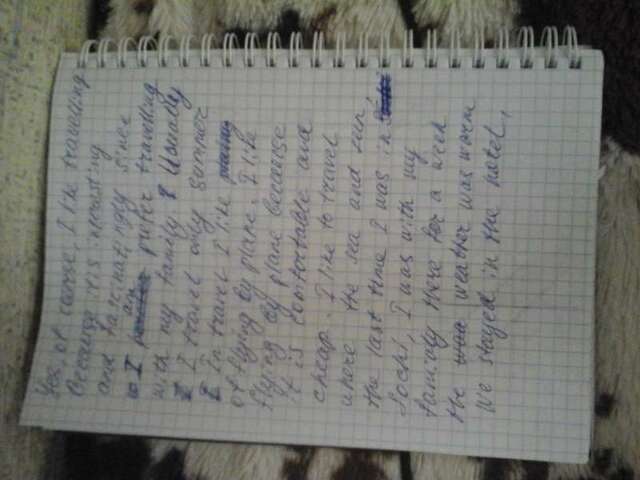 Yes, of course, I like travelling
Because it is interesting
and fascinatingly since
I am prefer travelling
with my family. Usually
I travel only summer
In travel I like
of flying by plane. I like
flying by plane because
it is comfortable and
cheap. I like to travel
where the sea and sun,
the last time I was in
Sochi, I was with my
family there for a week
the was weather was warm
We stayed in the hotel,